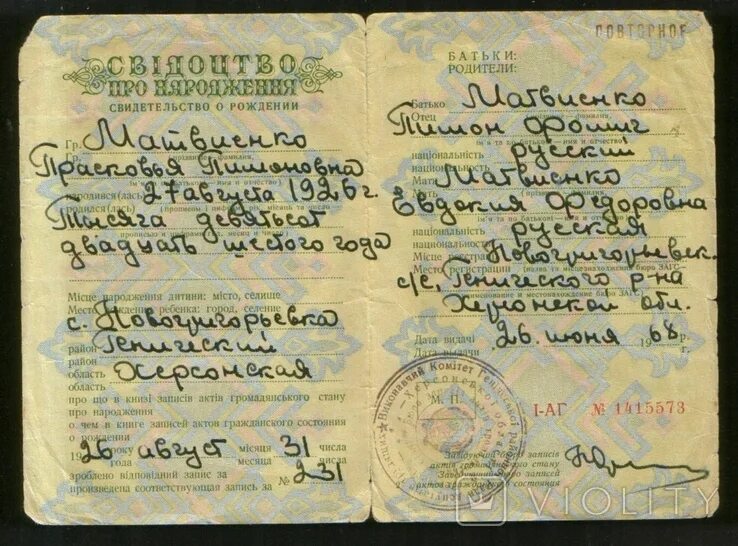 СВІДОЦТВО
ПРО НАРОДЖЕННЯ
СВИДЕТЕЛЬСТВО О РОЖДЕНИИ
Гр. Матвиенко
Прасковья Пимоновна
народився(лась) 27 августа 1926 г.
родился(лась)
Тысяча девятьсот
двадцать шестого года
Місце народження дитини: місто, селище
Место рождения ребенка: город, селение
с. Новогригорьевка
район Генический
район
область Херсонская
область
про що в книзі записів актів громадянського стану
про народження
о чем в книге записей актов гражданского состояния
о рождении
26 року август місяця 31 числа
19 года месяца числа
зроблено відповідний запис за № 231
произведена соответствующая запись за
ПОВТОРНОЕ
БАТЬКИ:
РОДИТЕЛИ:
Батько Матвиенко
Отец фамилия,
Пимон Фомич
національність русский
национальность
Мати Матвиенко
Мать
Евдокия Федоровна
національність русская
национальность
Місце реєстрації Новогригорьевск.
Место регистрации
с/с, Генического р-на
Херсонской обл.
Дата видачі 26 июня 1968 р.
Дата выдачи г.
М. П.
Виконавчий Комітет
I-АГ № 1415573
Завідуючий бюро записів
актів громадянського стану
Заведующий бюро записей
актов гражданского состояния
VIOLITY